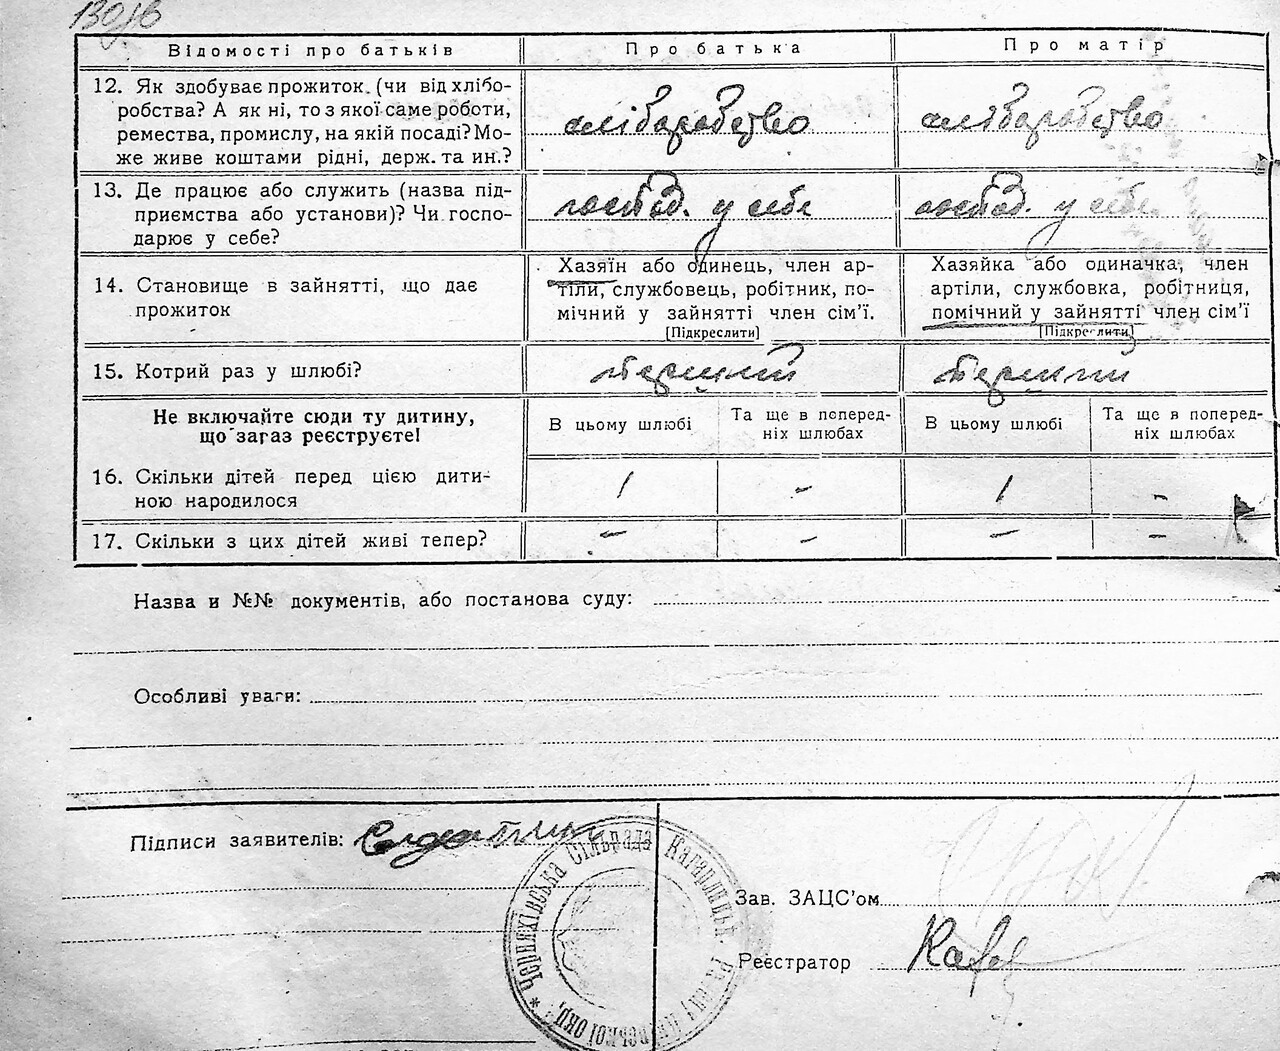 130/в
Відомості про батьків
Про батька
Про матір
12. Як здобуває прожиток (чи від хлібо-
робства? А як ні, то з якої саме роботи,
ремества, промислу, на якій посаді? Мо-
же живе коштами рідні, держ. та ин.?
хліборобство
хліборобство
13. Де працює або служить (назва під-
приємства або установи)? Чи госпо-
дарює у себе?
господ. у себе
господ. у себе
14. Становище в зайнятті, що дає
прожиток
Хазяїн або одинець, член ар-
тіли, службовець, робітник, по-
мічний у зайнятті член сім'ї.
[Підкреслити]
Хазяйка або одиначка, член
артіли, службовка, робітниця,
помічний у зайнятті член сім'ї
[Підкреслити]
15. Котрий раз у шлюбі?
перший
перший
Не включайте сюди ту дитину,
що загаз реєструєте!
В цьому шлюбі
Та ще в поперед-
ніх шлюбах
В цьому шлюбі
Та ще в поперед-
ніх шлюбах
16. Скільки дітей перед цією дити-
ною народилося
1 - 1 -
17. Скільки з цих дітей живі тепер?
- - - -
Назва и №№ документів, або постанова суду:
Особливі уваги:
Підписи заявителів:
Зав. ЗАЦС'ом
Реєстратор
* Черняхівська Сільрада Кагарлицьк.